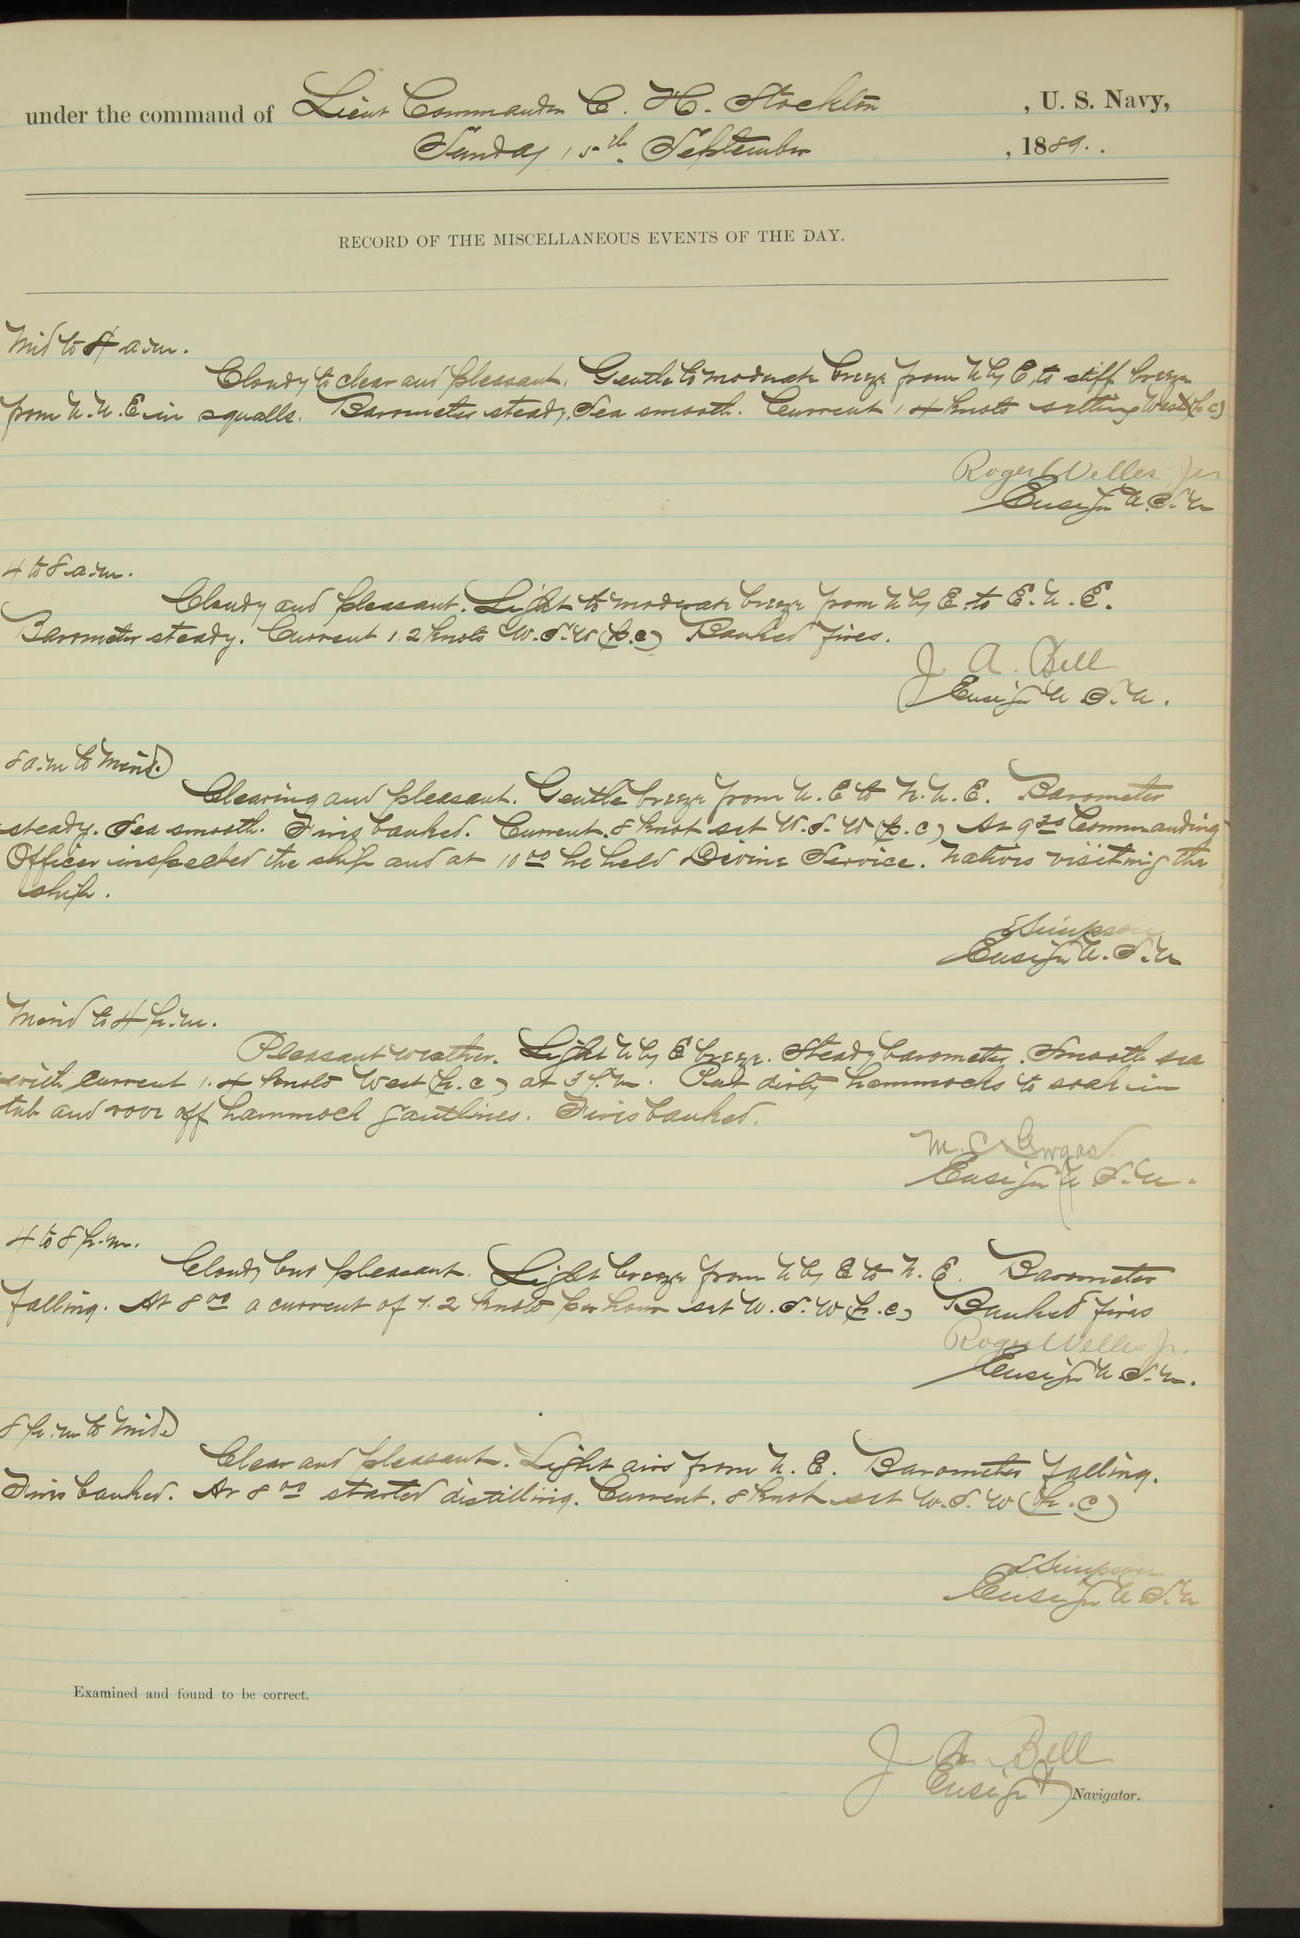 under the command of Lieut Commander C. H. Stockton , U. S. Navy,
Sunday 15th September , 1889.
RECORD OF THE MISCELLANEOUS EVENTS OF THE DAY.
Mid to 4 a.m.
Cloudy to clear and pleasant. Gentle to moderate breeze from N by E to stiff breeze
from N.N.E. in squalls. Barometer steady. Sea smooth. Current 1.4 knots setting West (p.c)
Roger Welles, Jr
Ensign U.S.N
4 to 8 a.m.
Cloudy and pleasant. Light to moderate breeze from N by E. to E.N.E.
Barometer steady. Current 1.2 knots W.S.W (p.c) Banked fires.
J. A. Bell
Ensign U.S.N.
8 a.m to Merid
Clearing and pleasant. Gentle breeze from N.E to N.N.E. Barometer
steady. Sea smooth. Fires banked. Current .8 knot set W.S.W (p.c) At 9 30 Commanding
Officer inspected the ship and at 10 00 he held Divine Service. Natives visiting the
ship.
E Simpson
Ensign U.S.N
Merid to 4 p.m.
Pleasant weather. Light N by E breeze. Steady barometer. Smooth sea
with current 1.4 knots West (p.c) at 3 p.m. Put dirty hammocks to soak in
tub and rove off hammock gantlines. Fires banked.
M. C. Gorgas.
Ensign U.S.N.
4 to 8 p.m.
Cloudy but pleasant. Light breeze from N by E to N.E. Barometer
falling. At 8 00 a current of 1.2 knots per hour set W.S.W (p.c) Banked fires
Roger Welles Jr.
Ensign U.S.N.
8 p.m to Mid.
Clear and pleasant. Light airs from N.E. Barometer falling.
Fires banked. At 8 00 started distilling. Current .8 knot set W.S.W (p.c)
E Simpson
Ensign U.S.N
Examined and found to be correct.
J. A. Bell
Ensign Navigator.